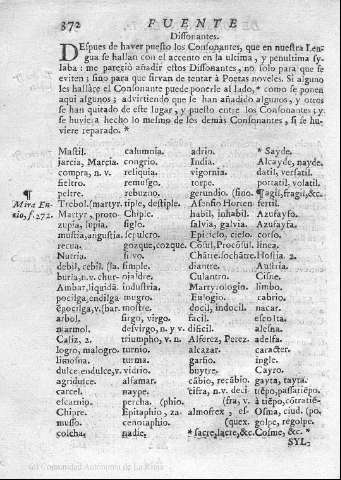 372 FUENTE
Dissonantes.
Despues de haver puesto los Consonantes, que en nuestra Len-
gua se hallan con el accento en la ultima, y penultima sy-
laba: me pareziò añadir estos Dissonantes, no solo para que se
eviten; sino para que sirvan de tentar à Poetas noveles. Si alguno
les hallàre el Consonante puede ponerle al lado,* como se ponen
aqui algunos; advirtiendo que se han añadido algunos, y otros
se han quitado de este lugar, y puesto entre los Consonantes; y
se huviera hecho lo mesmo de los demàs Consonantes, si se hu-
viere reparado. *
Mastil. calumnia. adrio. * Sayde.
jarcia, Marcia. congrio. India. Alcayde, nayde.
compra, n.v. reliquia. vigornia. datil, versatil.
fieltro. remulgo. torpe. portatil, volatil.
¶ peltre. rebuzno. gerundio. ¶ agil, fragil, &c.
Mira En- Trebol. martyr. tiple, destiple. Alfonso Horten fertil.
nio, f. 272. Martyr, protho Chiple. habil, inhabil. Azufayfo.
zupia, lupia. siglo. salvia, galvia. Azufayfa.
mustia, angustia. sepulcro. Epiciclo, ciclo. corso.
recua. gozque, cozque. Cosul, Procòsul. linea.
Nutria. silvo. Chàtre. Hostia. 2.
debil, cebil. simple. diantre. Austria.
buria, n.v. ojaldre. Culantro. Cisne.
Ambar, liquidà industria. Martyrologio. limbo.
pocilga, endilga mugro. Eulogio. cabrio.
èpocilga, v. mostre. docil, indocil. nacar.
arbol. virgo, virgo. facil. escolta.
marmol. desvirgo, n. y v. dificil. alesna.
Caliz. 2. triumpho, v. n. Alferez, Perez. adelfa.
logro, malogro. turnio. alcazar. caracter.
limosna. turmia. garlio. ingle.
dulce. endulce, v. vidrio. buytre. Cayro.
agridulce. alfamar. càbio, recàbio. gayta, tayta.
carcel. naype. cifra, n.v. deci tiẽpo, passatiẽpo.
escarnio. percha. (phio. (fra, v. à tiẽpo, còtratiẽ-
Chipre. Epitaphio, za- almofrex, es- Osma, ciud. (po.
musso. cenotaphio. (quex. golpe, règolpe.
colcha. nadie. * sacre, lacre, &c. Cosme, &c. *
SYL-
(c) Comunidad Autónoma de La Rioja